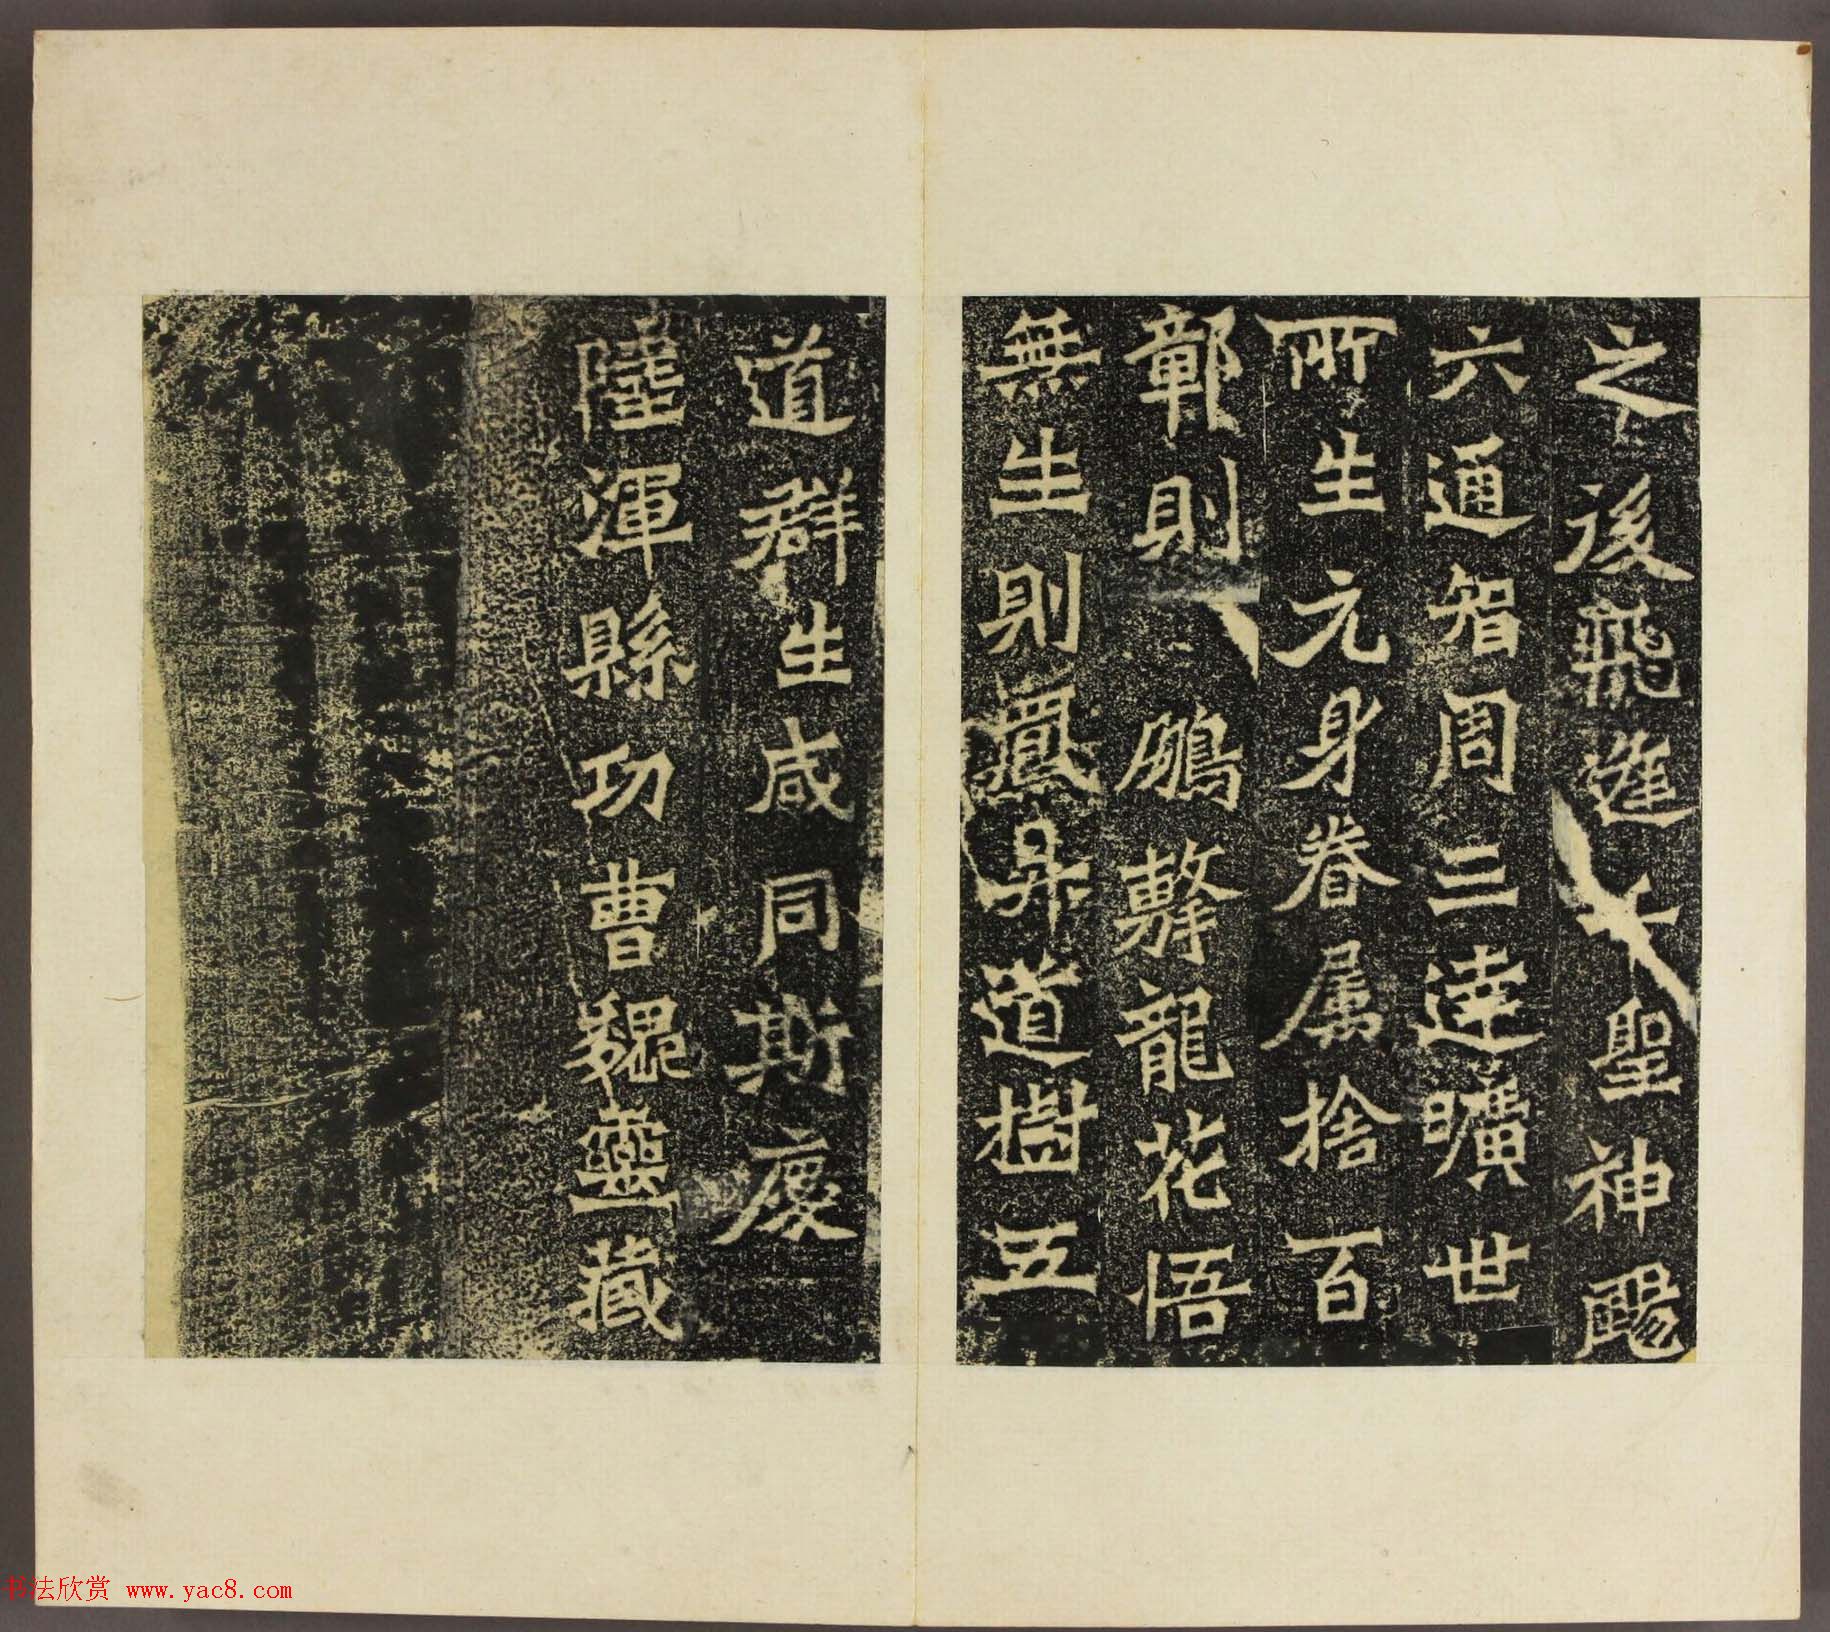 之後飛進十聖神颺
六通智周三達曠世
所生元身眷屬捨百
鄣則鵬擊龍花悟
無生則鳳昇道樹五
道群生咸同斯慶
陸渾縣功曹魏靈藏
书法欣赏 www.yac8.com